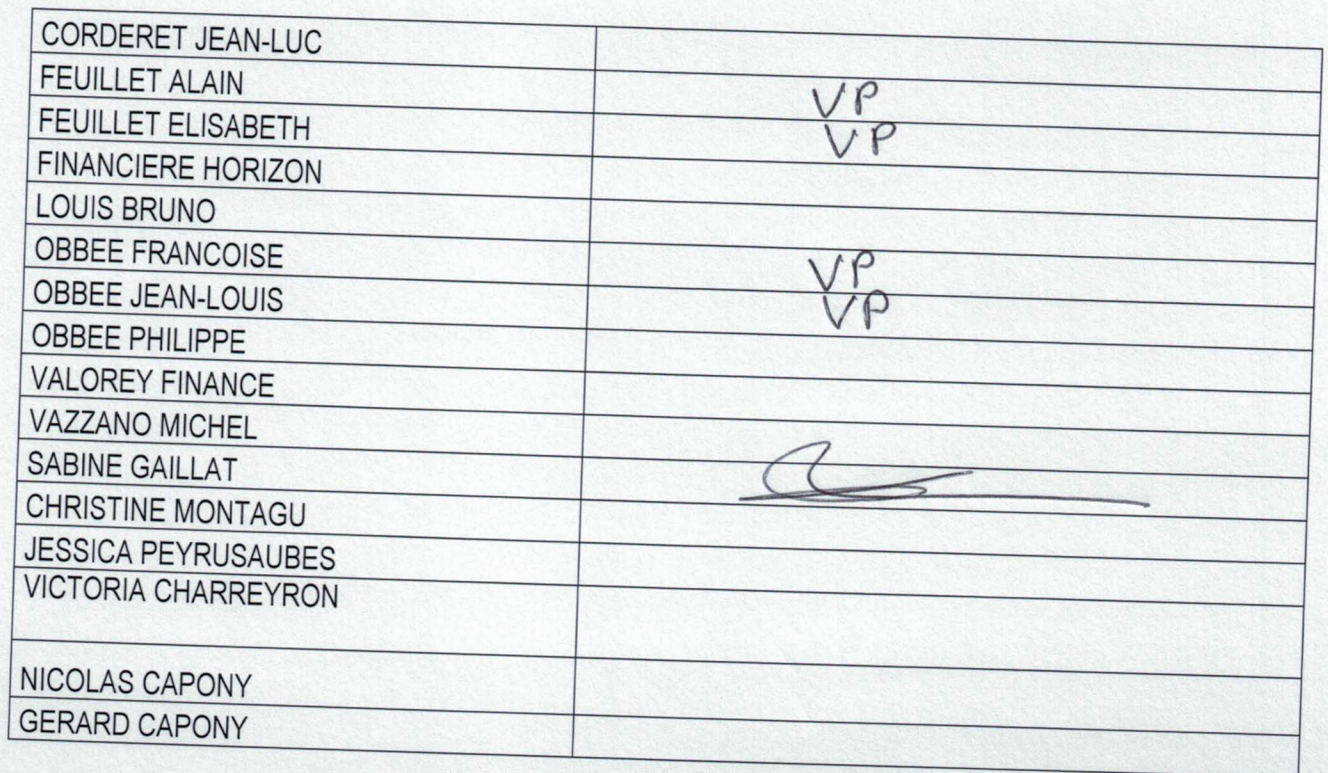 CORDERET JEAN-LUC
FEUILLET ALAIN VP
FEUILLET ELISABETH VP
FINANCIERE HORIZON
LOUIS BRUNO
OBBEE FRANCOISE VP
OBBEE JEAN-LOUIS VP
OBBEE PHILIPPE
VALOREY FINANCE
VAZZANO MICHEL
SABINE GAILLAT
CHRISTINE MONTAGU
JESSICA PEYRUSAUBES
VICTORIA CHARREYRON
NICOLAS CAPONY
GERARD CAPONY